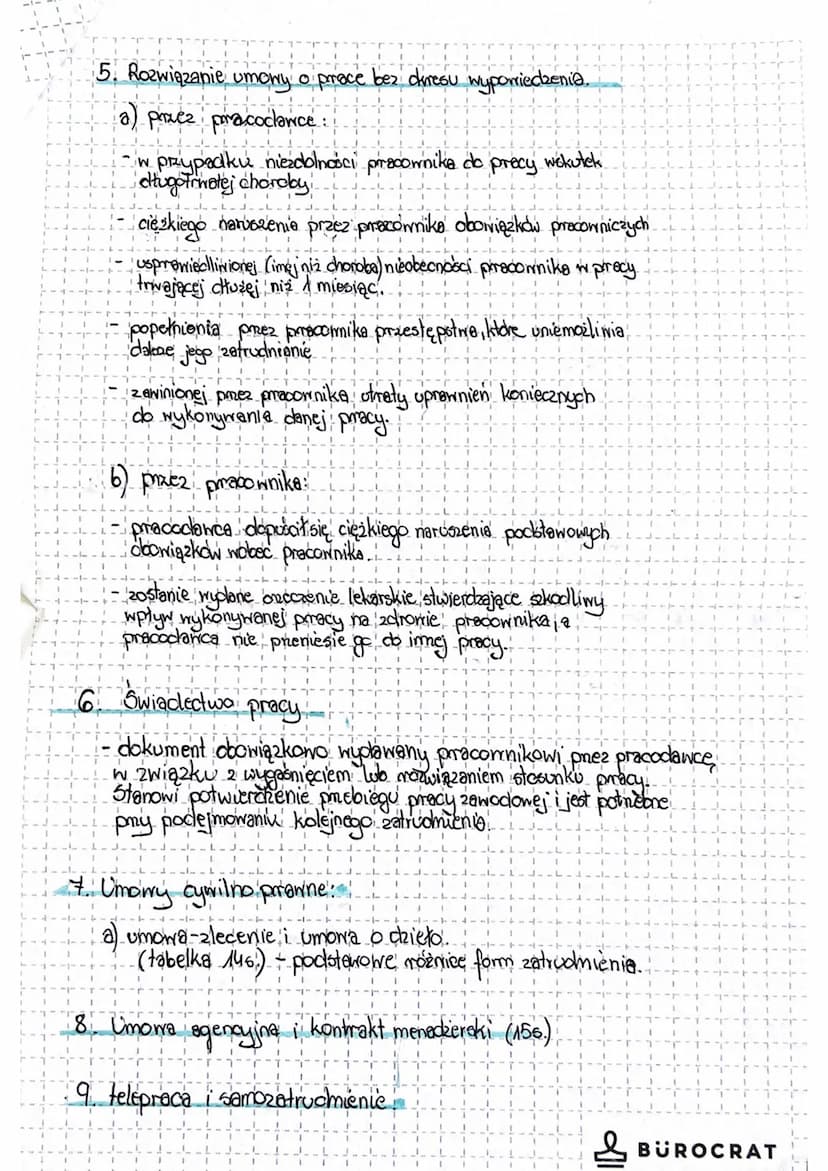 5. Rozwiązanie umowy o pracę bez okresu wypowiedzenia.
a) przez pracodawcę:
- w przypadku niezdolności pracownika do pracy wskutek
długotrwałej choroby
- ciężkiego naruszenia przez pracownika obowiązków pracowniczych
- usprawiedliwionej (innej niż choroba) nieobecności pracownika w pracy
trwającej dłużej niż 1 miesiąc.
- popełnienia przez pracownika przestępstwa, które uniemożliwia
dalsze jego zatrudnienie
- zawinionej przez pracownika utraty uprawnień koniecznych
do wykonywania danej pracy.
b) przez pracownika:
- pracodawca dopuścił się ciężkiego naruszenia podstawowych
obowiązków wobec pracownika.
- zostanie wydane orzeczenie lekarskie stwierdzające szkodliwy
wpływ wykonywanej pracy na zdrowie pracownika, a
pracodawca nie przeniesie go do innej pracy.
6. Świadectwo pracy
- dokument obowiązkowo wydawany pracownikowi przez pracodawcę
w związku z wygaśnięciem lub rozwiązaniem stosunku pracy.
Stanowi potwierdzenie przebiegu pracy zawodowej i jest potrzebne
przy podejmowaniu kolejnego zatrudnienia.
7. Umowy cywilno prawne:
a) umowa-zlecenie i umowa o dzieło.
(tabelka 14s.) - podstawowe różnice form zatrudnienia.
8. Umowa agencyjna i kontrakt menadżerski (15s.)
9. telepraca i samozatrudnienie.
BÜROCRAT